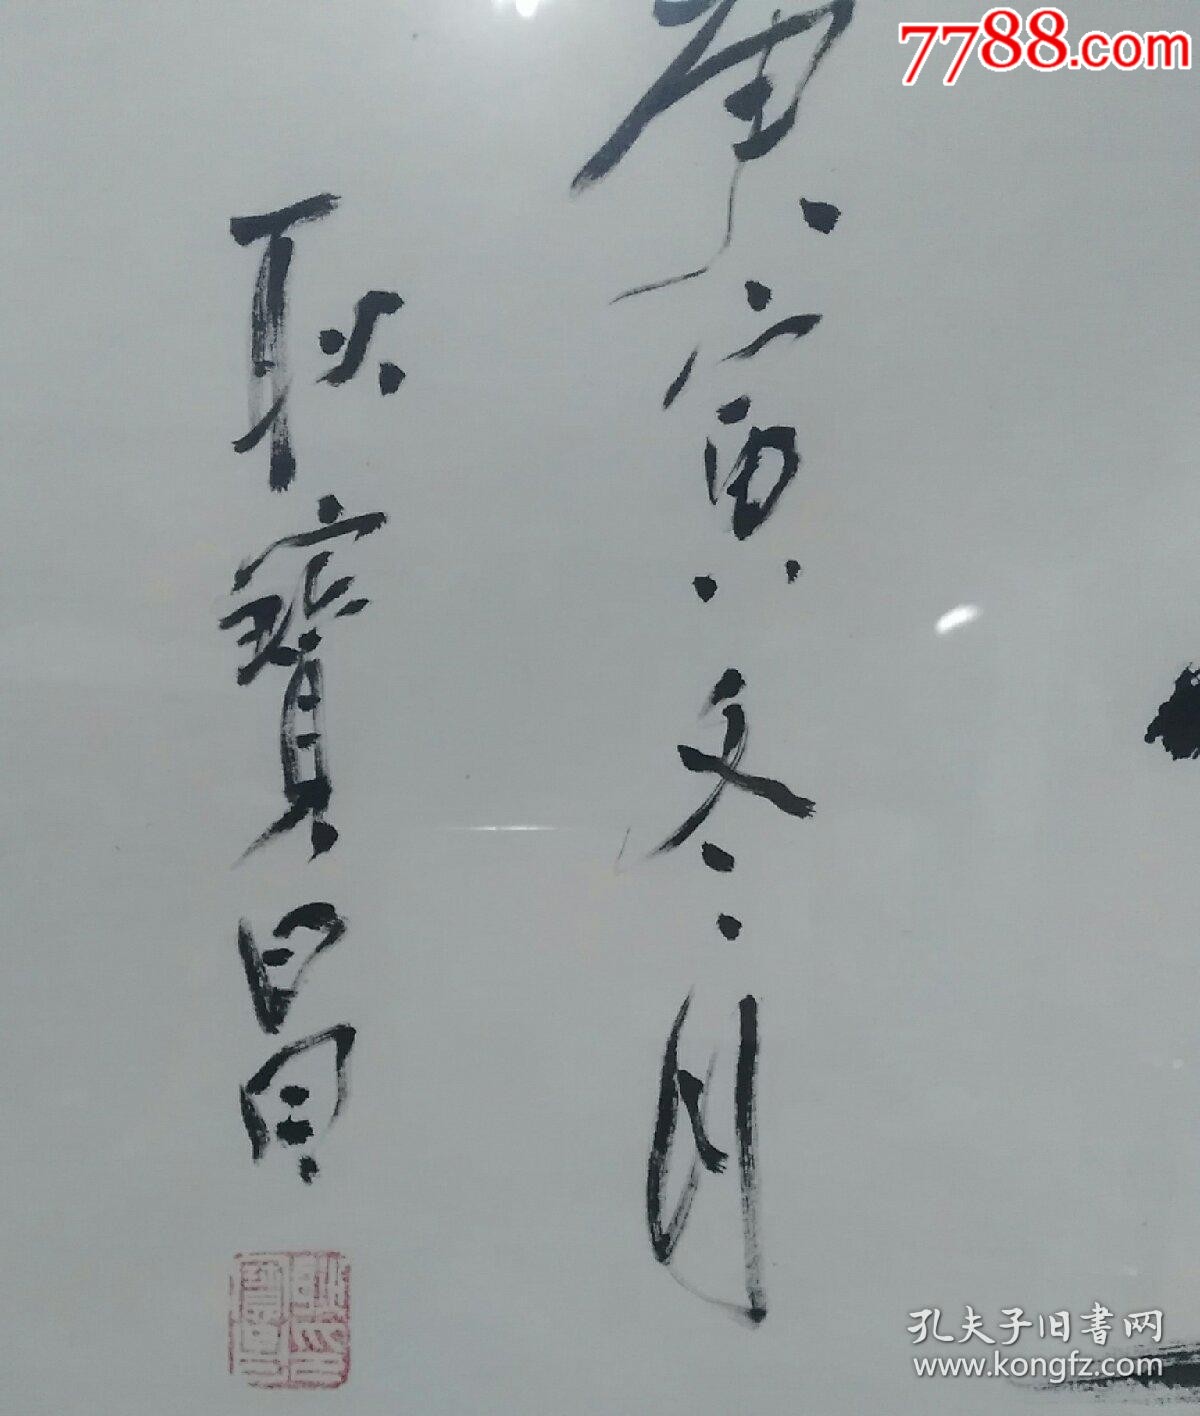 7788.com
庚寅冬月
耿寳昌
孔夫子旧書网
www.kongfz.com